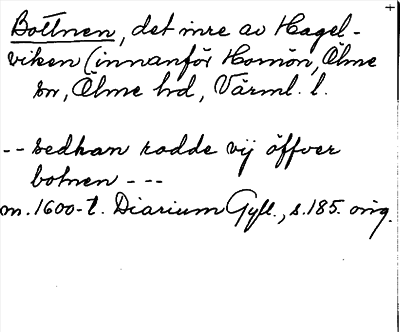 Bottnen, det inre av Hagel-
viken (innanför Homön, Ölme
sn, Ölme hd, Värml. l.
-- sedhan rodde vij öffver
botnen ---
m. 1600-t. Diarium Gyll., s. 185. orig.